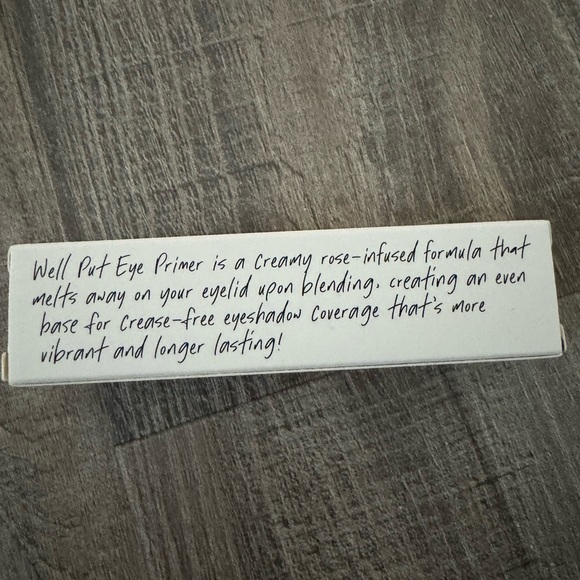 Well Put Eye Primer is a creamy rose-infused formula that
melts away on your eyelid upon blending, creating an even
base for crease-free eyeshadow coverage that's more
vibrant and longer lasting!